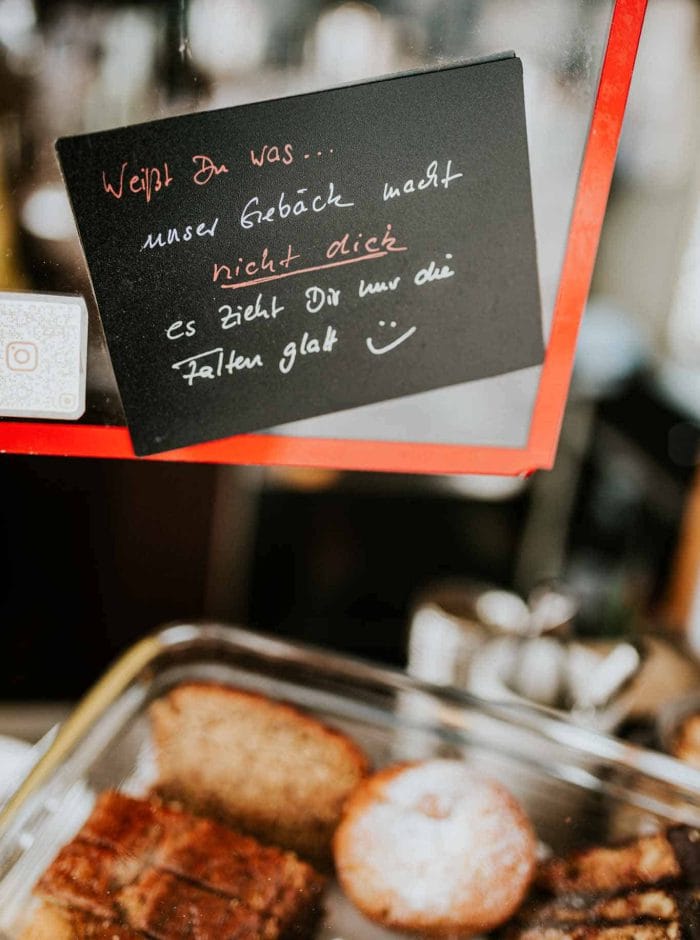 Weißt Du was...
unser Gebäck macht
nicht dick
es zieht Dir nur die
Falten glatt